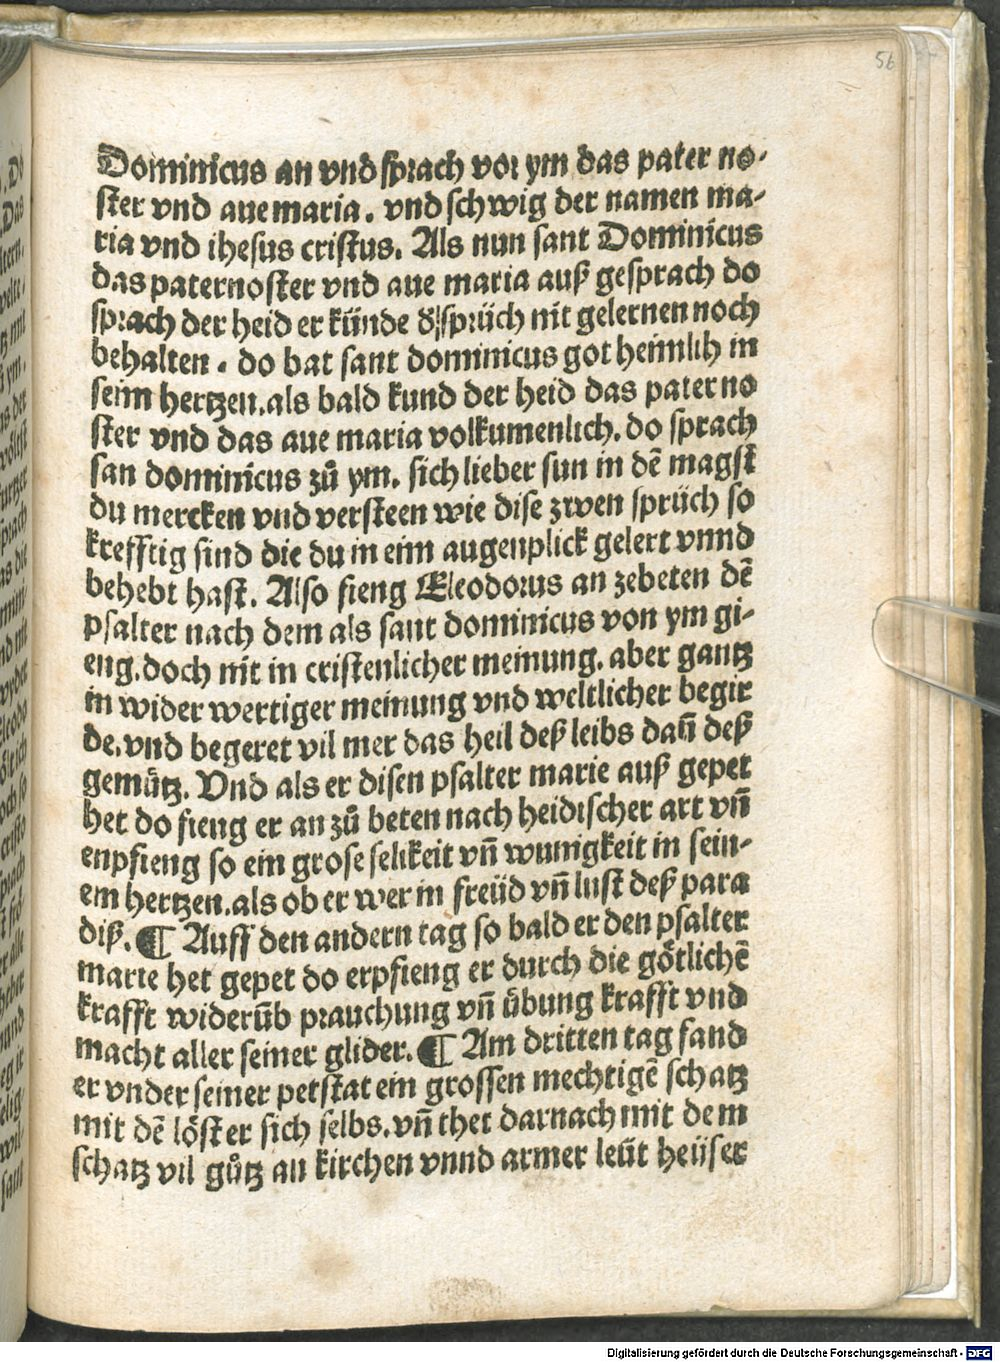 56
Dominicus an vnd sprach vor ym das pater no-
ster vnd aue maria. vnd schwig der namen ma-
ria vnd ihesus cristus. Als nun sant Dominicus
das paternoster vnd aue maria auß gesprach do
sprach der heid er künde d sprüch nit gelernen noch
behalten. do bat sant dominicus got heimlih in
seim hertzen. als bald kund der heid das paterno
ster vnd das aue maria volkumenlich. do sprach
san dominicus zů ym. sich lieber sun in dē magst
du mercken vnd versteen wie dise zwen sprüch so
krefftig sind die du in eim augenplick gelert vnnd
behebt hast. Also fieng Eleodorus an zebeten dē
psalter nach dem als sant dominicus von ym gi-
eng. doch nit in cristenlicher meinung. aber gantz
in wider wertiger meinung vnd weltlicher begir
de. vnd begeret vil mer das heil deß leibs dañ deß
gemütz. Vnd als er disen psalter marie auß gepet
het do fieng er an zů beten nach heidischer art vñ
enpfieng so ein grose selikeit vñ wunigkeit in sein-
em hertzen. als ob er wer in freüd vñ lust deß para
diß. ¶ Auff den andern tag so bald er den psalter
marie het gepet do erpfieng er durch die götlichē
krafft widerūb prauchung vñ übung krafft vnd
macht aller seiner glider. ¶ Am dritten tag fand
er vnder seiner petstat ein grossen mechtigē schatz
mit dē löst er sich selbs. vñ thet darnach mit dem
schatz vil gůtz an kirchen vnnd armer leüt heüser
Digitalisierung gefördert durch die Deutsche Forschungsgemeinschaft - DFG